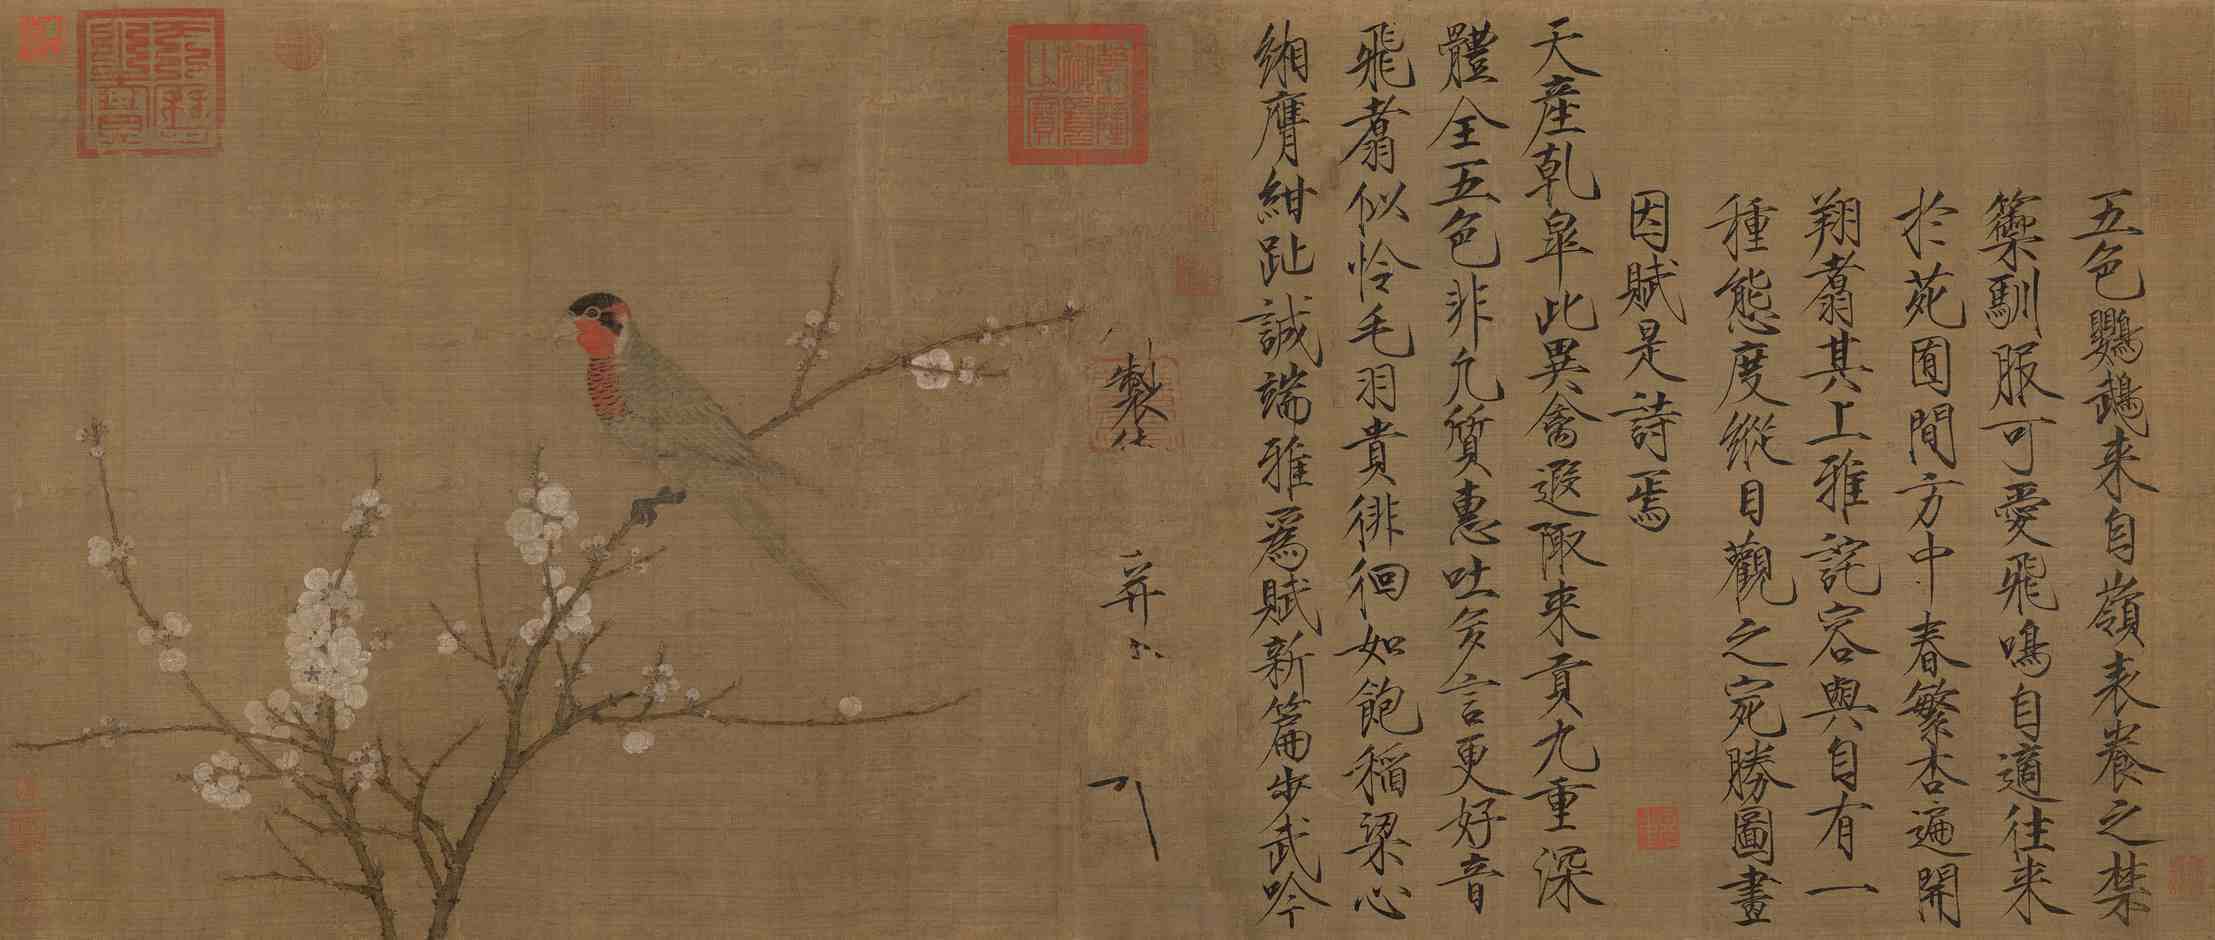 五色鸚鵡来自嶺表養之禁
籞馴服可愛飛鳴自適往来
於苑囿間方中春繁杏遍開
翔翥其上雅詫容與自有一
種態度縱目觀之宛勝圖畫
因賦是詩焉
天産乹皐此異禽遐陬来貢九重深
體全五色非凡質惠吐多言更好音
飛翥似怜毛羽貴徘徊如飽稲粱心
緗膺紺趾誠端雅爲賦新篇步武吟
製
并